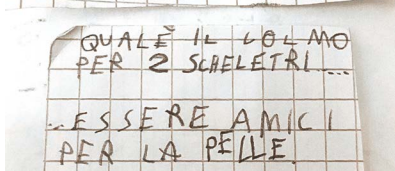 QUALE È IL COLMO
PER 2 SCHELETRI...
..ESSERE AMICI
PER LA PELLE.